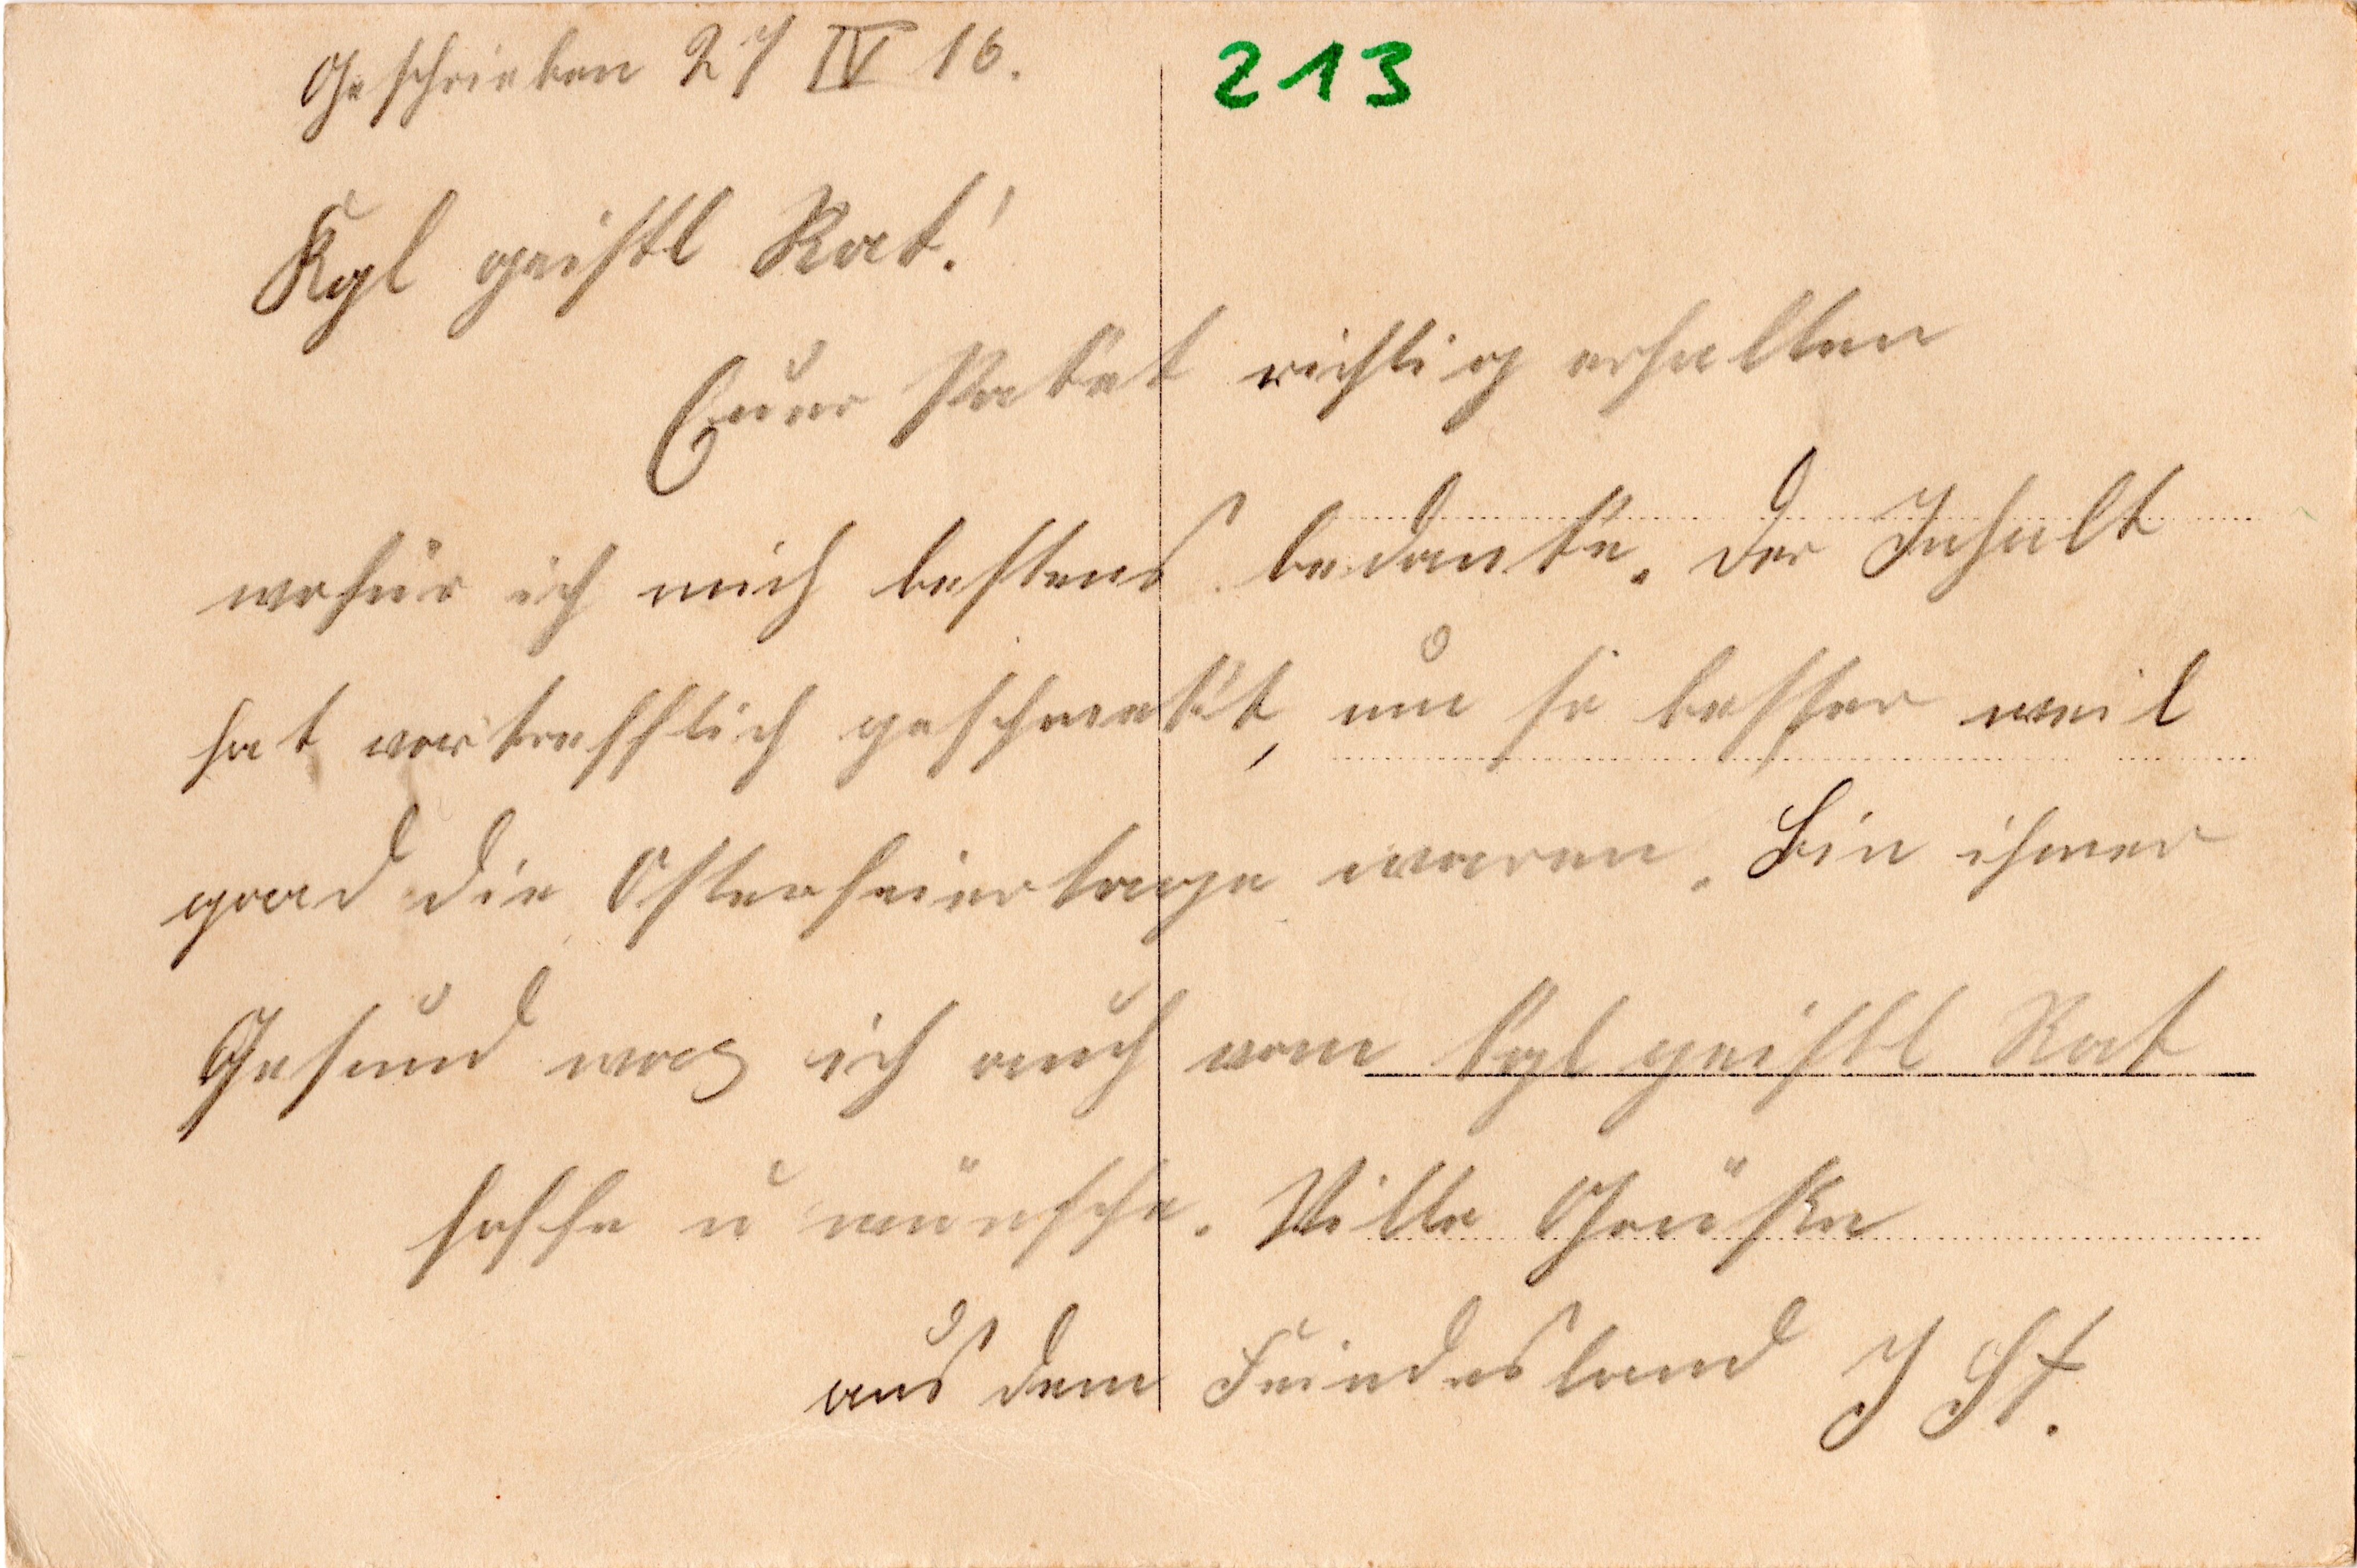 Geschrieben 27 IV 16.
213
Kgl geistl Rat!
Euer Paket richtig erhalten
wofür ich mich bestens bedanke. Der Inhalt
hat vortrefflich geschmekt, um so besser weil
grad die Osterfeiertage waren. Bin immer
Gesund was ich auch vom kgl geistl Rat
hoffe u wünsche. Viele Grüße
aus dem Feindesland J St.